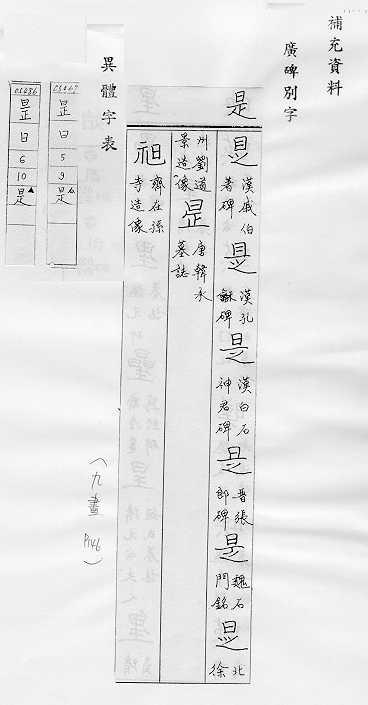 補充資料
廣碑別字
是
是 漢戚伯著碑 是 漢孔龢碑 是 漢白石神君碑 是 晉張郎碑 是 魏石門銘 是 北徐
州劉道景造像 昰 唐韓永墓誌
䄆 齊在孫寺造像
(九畫 P146)
異體字表
C5067
昰
日
5
9
是
C5086
昰
日
6
10
是